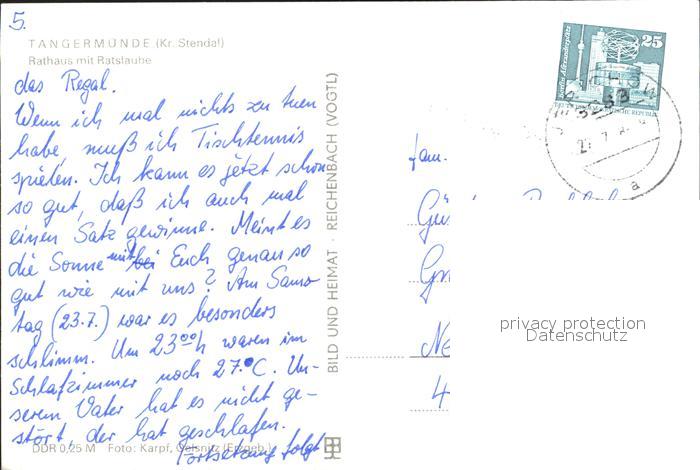 5.
TANGERMÜNDE (Kr. Stendal)
Rathaus mit Ratslaube
das Regal.
Wenn ich mal nichts zu tuen
habe, muß ich Tischtennis
spielen. Ich kann es jetzt schon
so gut, daß ich auch mal
einen Satz gewinne. Meint es
die Sonne mit bei Euch genau so
gut wie mit uns? Am Sams-
tag (23.7.) war es besonders
schlimm. Um 23⁰⁰h waren im
Schlafzimmer noch 27°C. Un-
serem Vater hat es nicht ge-
stört, der hat geschlafen.
Fortsetzung folgt
DDR 0,25 M Foto: Karpf, Oelsnitz (Erzgeb.)
BILD UND HEIMAT · REICHENBACH (VOGTL)
25
Berlin, Alexanderplatz
3283
a
Fam.
4
privacy protection
Datenschutz